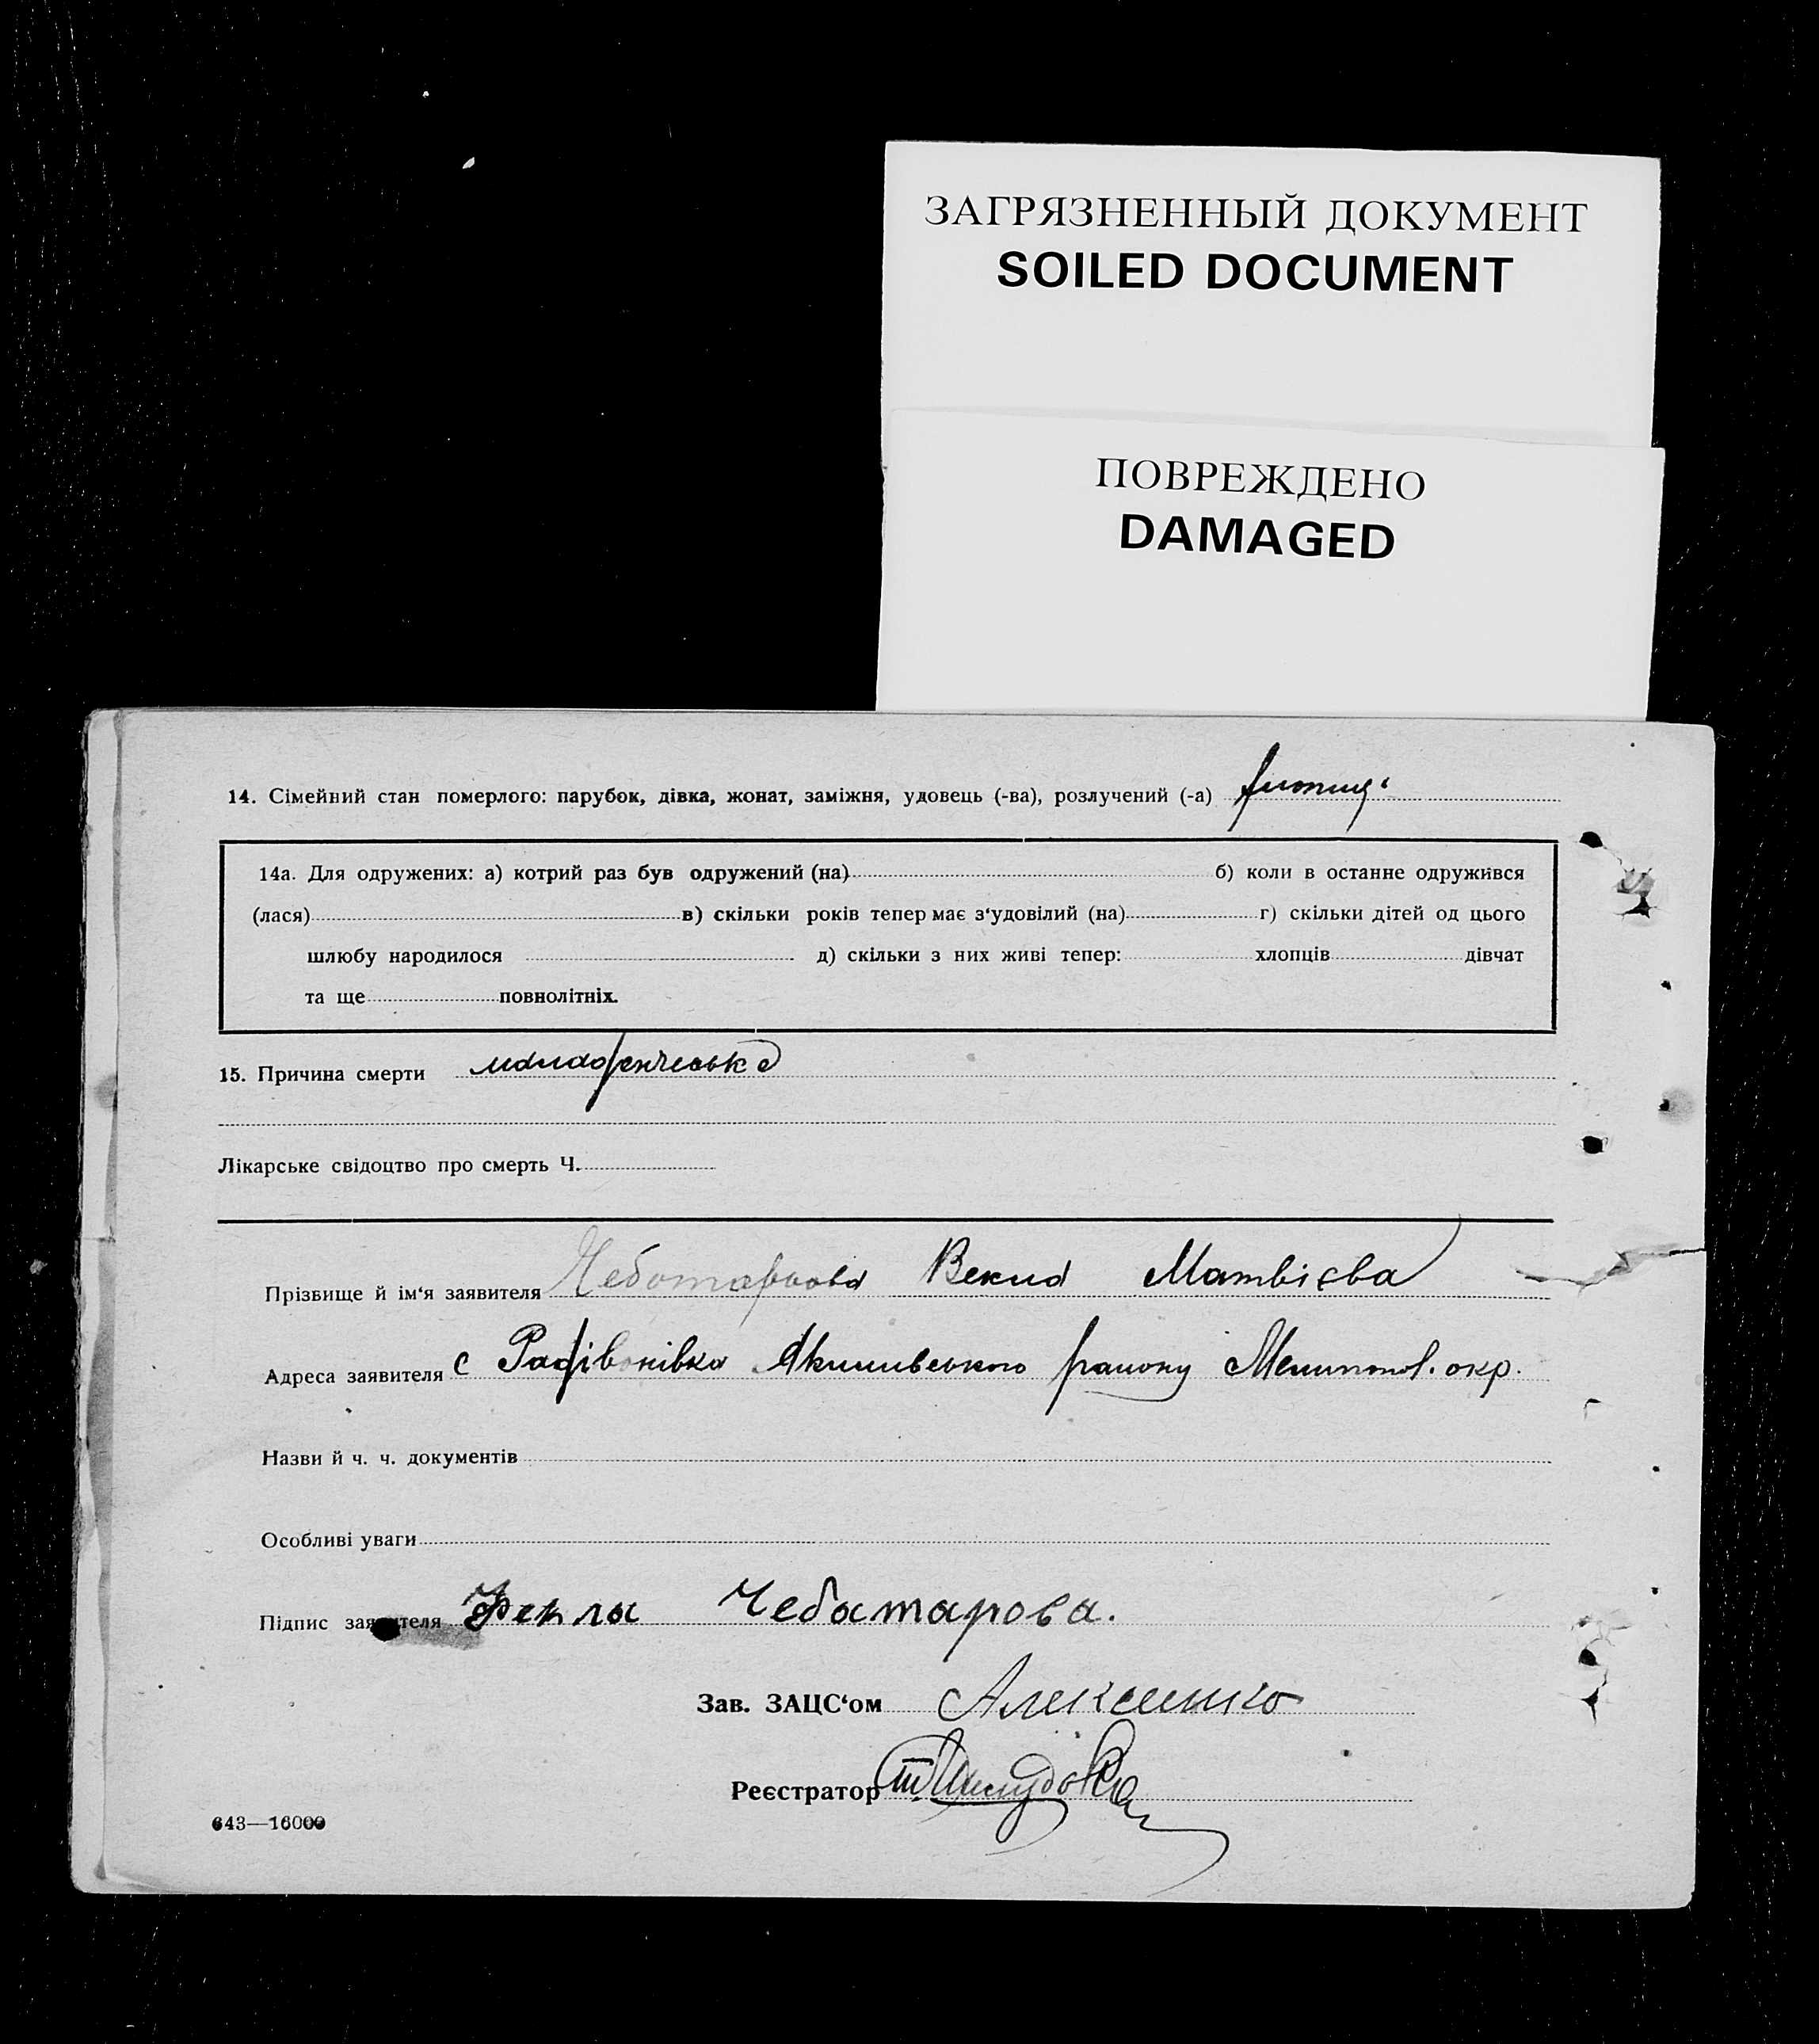 ЗАГРЯЗНЕННЫЙ ДОКУМЕНТ
SOILED DOCUMENT
ПОВРЕЖДЕНО
DAMAGED
14. Сімейний стан померлого: парубок, дівка, жонат, заміжня, удовець (-ва), розлучений (-а)
14а. Для одружених: а) котрий раз був одружений (на) б) коли в останне одружився
(лася) в) скільки років тепер має з‘удовілий (на) г) скільки дітей од цього
шлюбу народилося д) скільки з них живі тепер: хлопців дівчат
та ще повнолітніх.
15. Причина смерти
Лікарське свідоцтво про смерть Ч.
Прізвище й ім‘я заявителя Матвієва
Адреса заявителя с Радівонівка Якимивського району Мелитопол. окр.
Назви й ч. ч. документів
Особливі уваги
Підпис заявителя Фекла Чебатарова.
Зав. ЗАЦС‘ом Алексенко
Реєстратор
643—16000